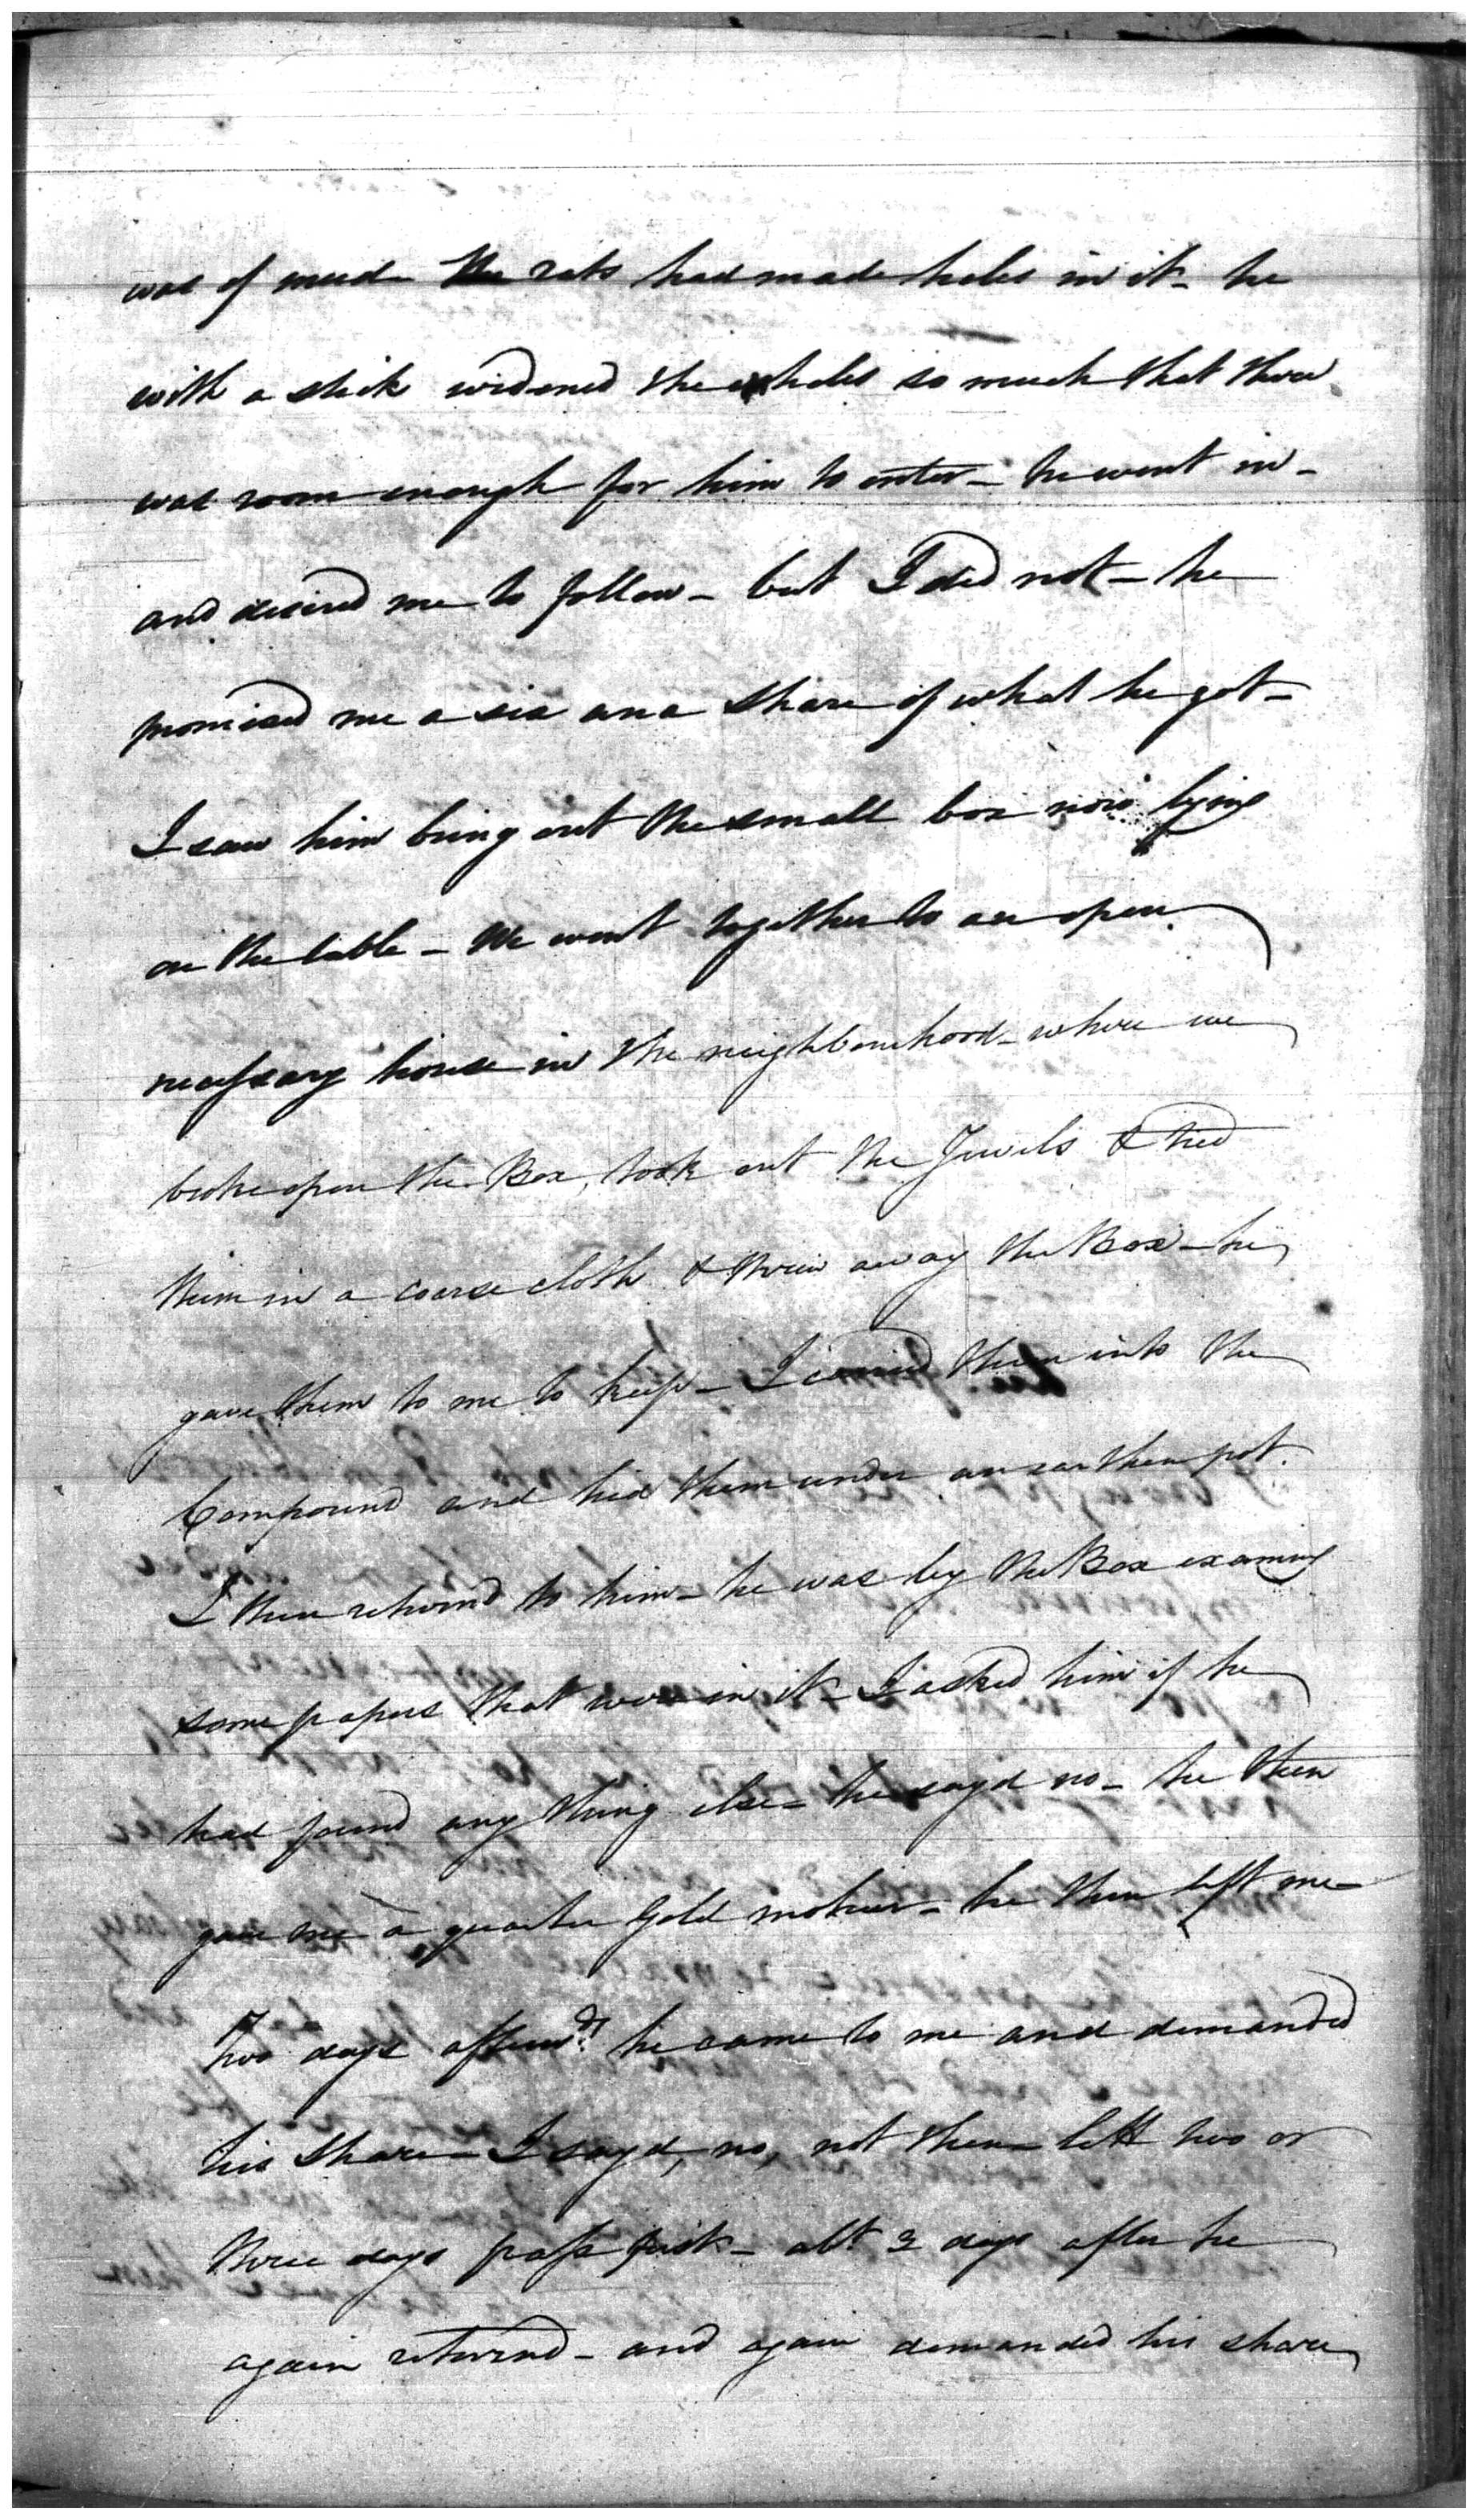 was of mud the rats had made holes in it - he
with a stick widened the holes so much that there
was room enough for him to enter - he went in -
and desired me to follow - but I did not - he
promised me a six ana share of what he got -
I saw him bring out the small box now lying
on the table - We went together to an open
necessary house in the neighbourhood - where we
broke open the Box, took out the Jewels & tied
them in a coarse cloth & threw away the Box - he
gave them to me to keep - I carried them into the
Compound and hid them under an earthen pot.
I then returnd to him - he was by the Box examing
some papers that were in it - I asked him if he
had found any thing else - he sayd no - he then
gave me a quarter Gold mohur - he then left me -
Two days afterwds. he came to me and demanded
his share - I sayd, no, not then - lett two or
three days pass first - abt. 2 days after he
again returnd - and again demanded his share